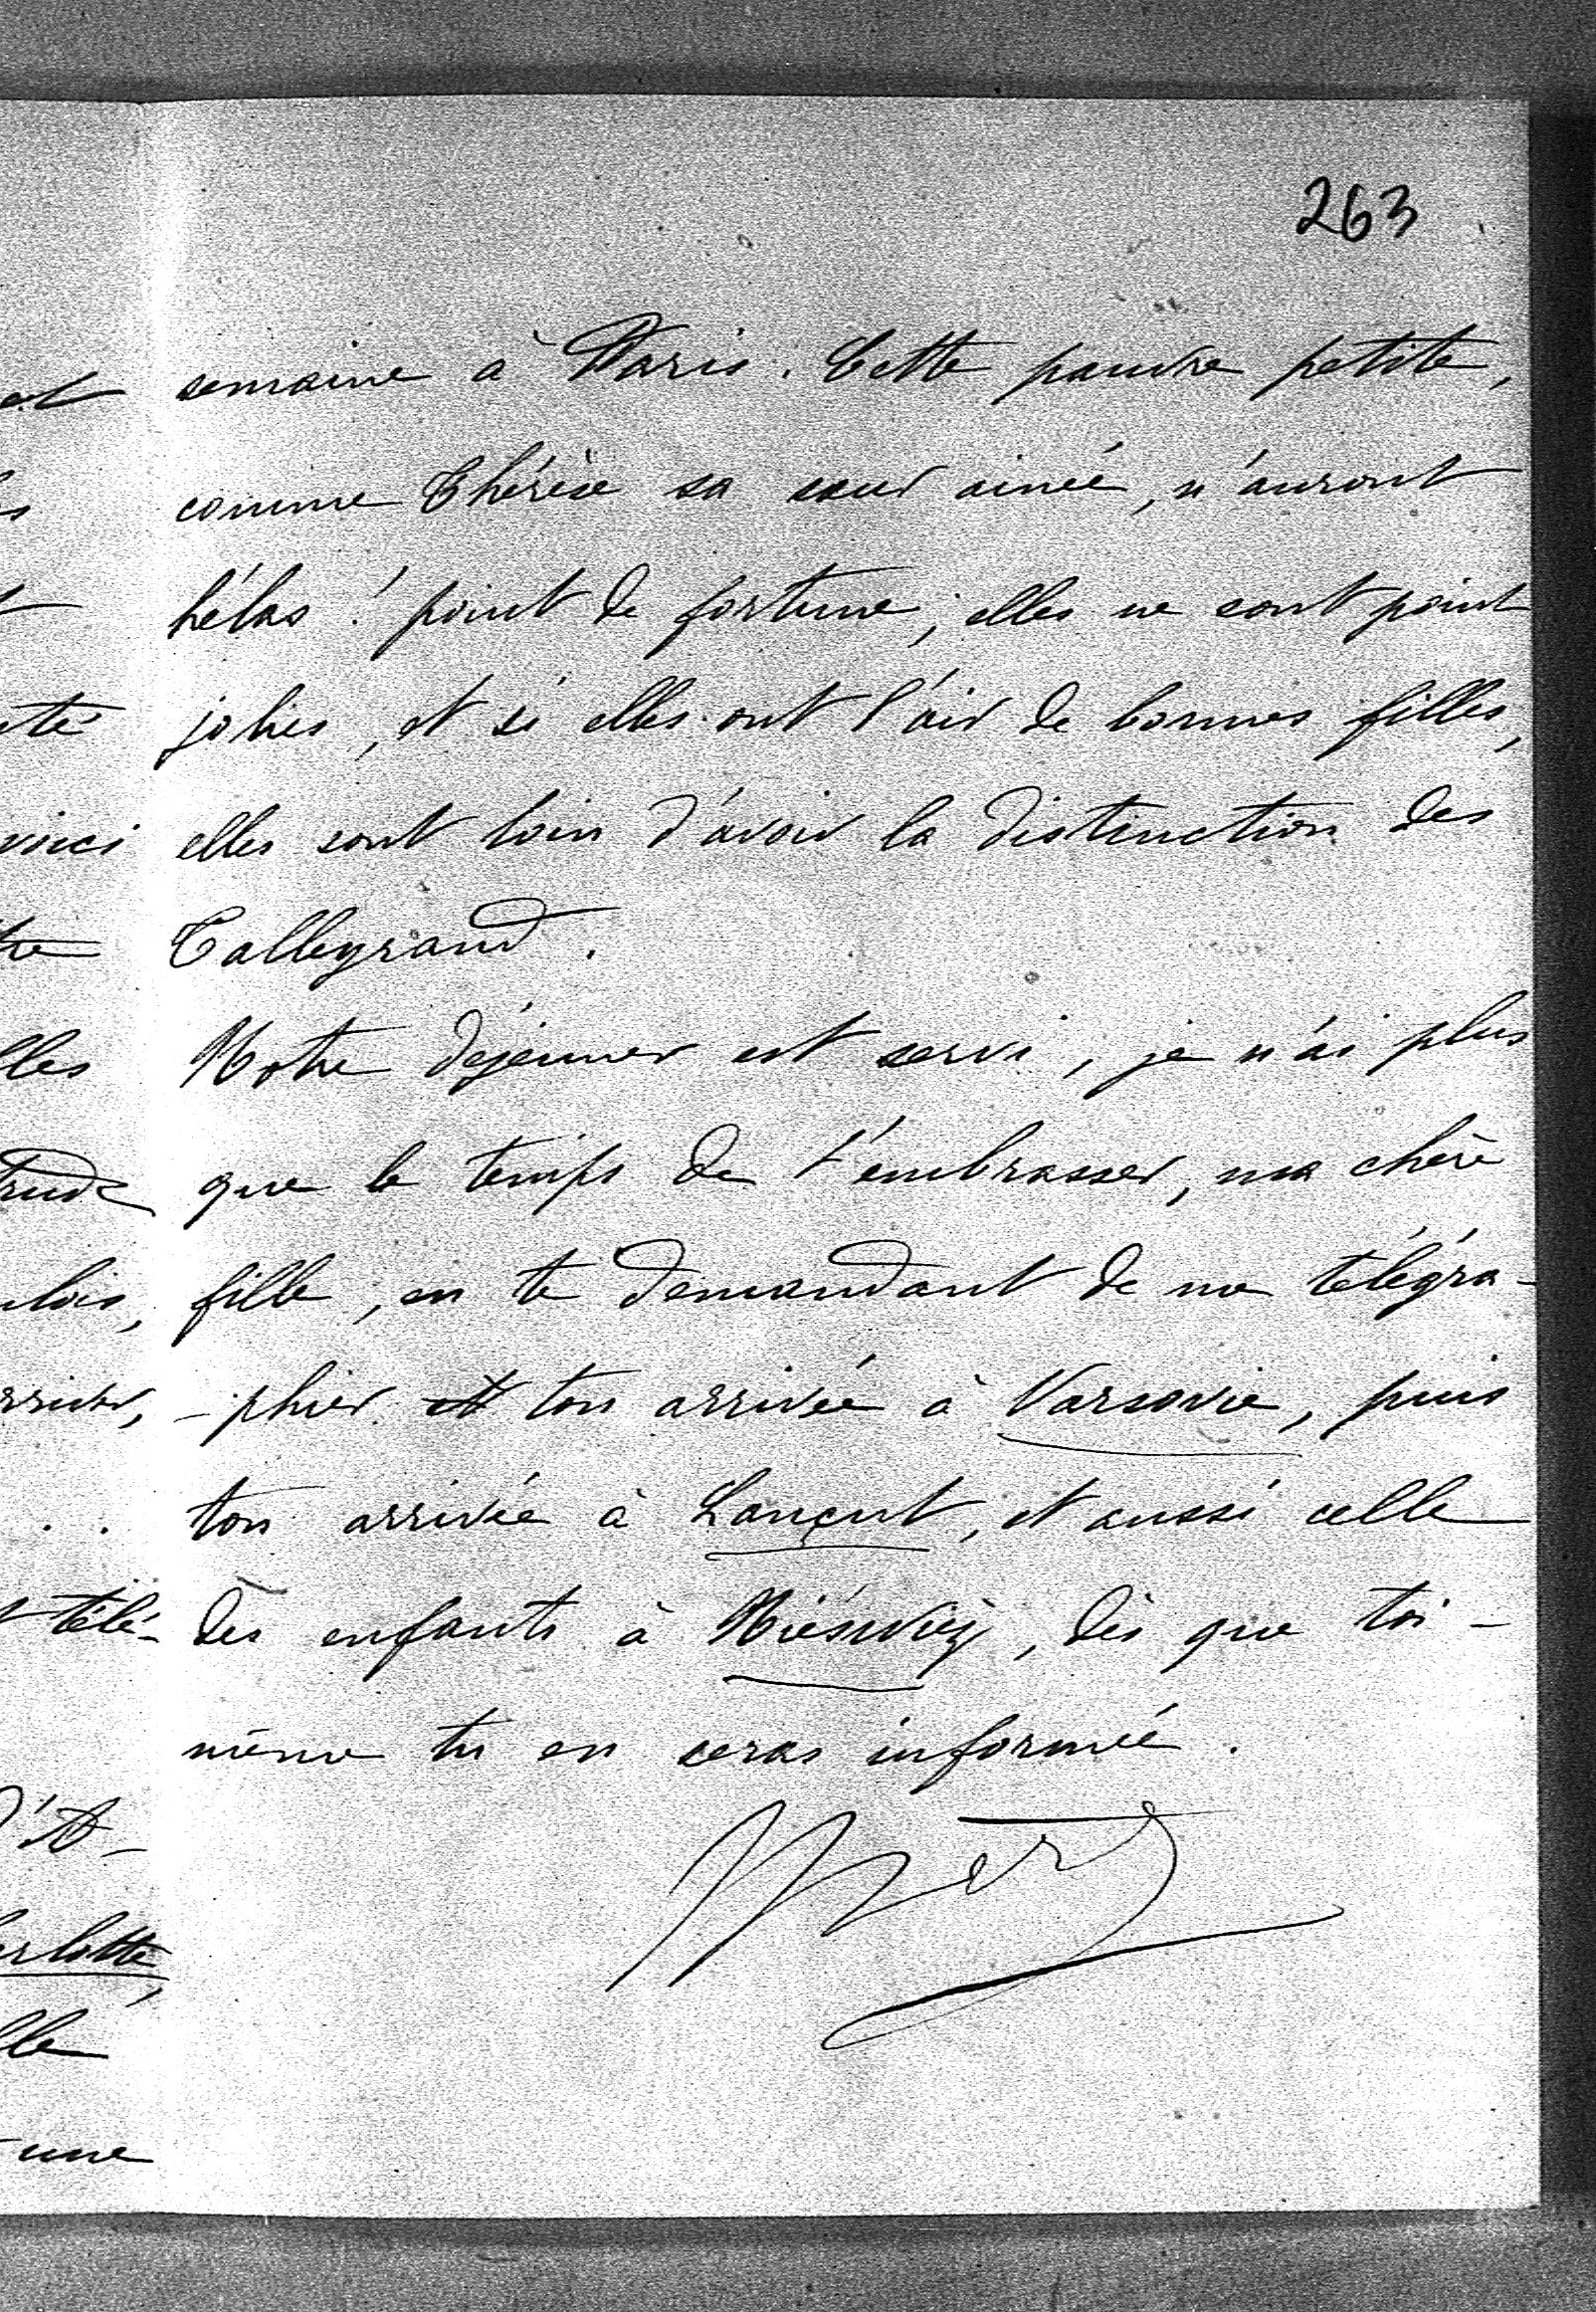 263
semaine à Paris. Cette pauvre petite,
comme Thérèse sa sœur ainée, n'auront
hélas ! point de fortune ; elles ne sont point
jolies, et si elles ont l'air de bonnes filles,
elles sont loin d'avoir la distinction des
Talleyrand.
Notre déjeuner est servi, je n'ai plus
que le temps de t'embrasser, ma chère
fille, en te demandant de me télégra-
-phier ton arrivée à Varsovie, puis
ton arrivée à Lançut, et aussi celle
des enfants à Niéswiéj, dès que toi-
même tu en seras informée.
voici
télé-
une